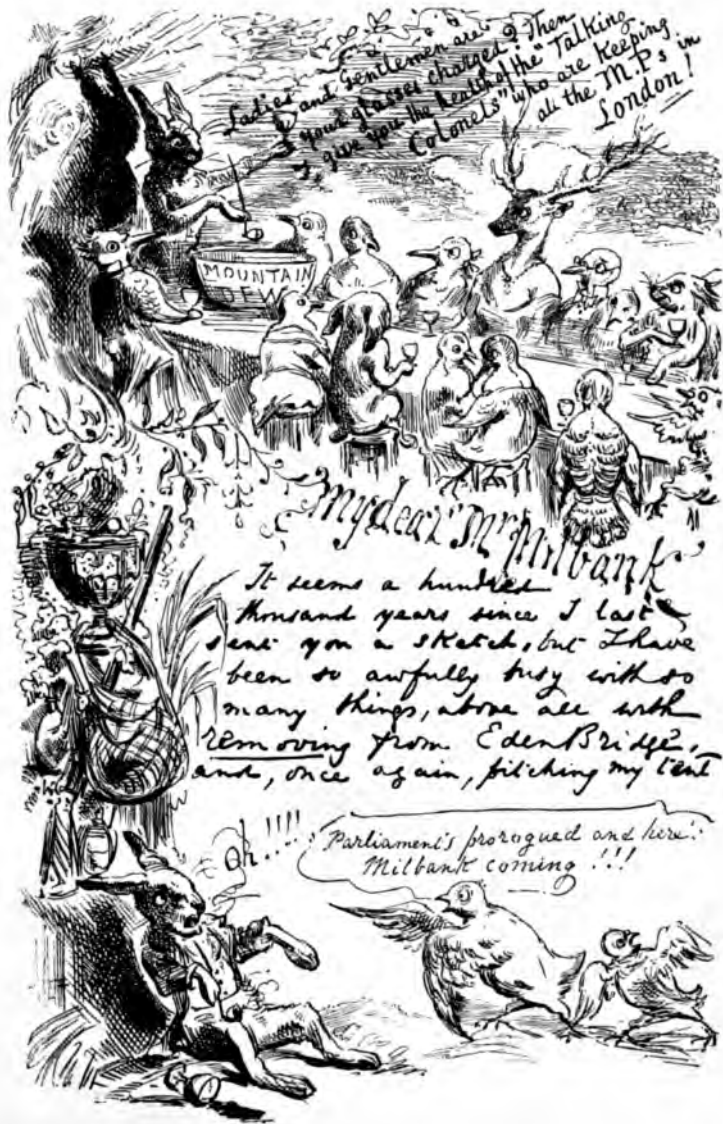 Ladies and Gentlemen are
your glasses charged? Then
I give you the health of the "Talking
Colonels" who are keeping
all the M.P.s in
London!
MOUNTAIN
DEW
My dear Mr Milbank
It seems a hundred
thousand years since I last
sent you a sketch, but I have
been so awfully busy with so
many things, above all with
removing from EdenBridge,
and, once again, pitching my tent
Oh....!!!!
Parliament's prorogued and here's
Milbank coming!!!